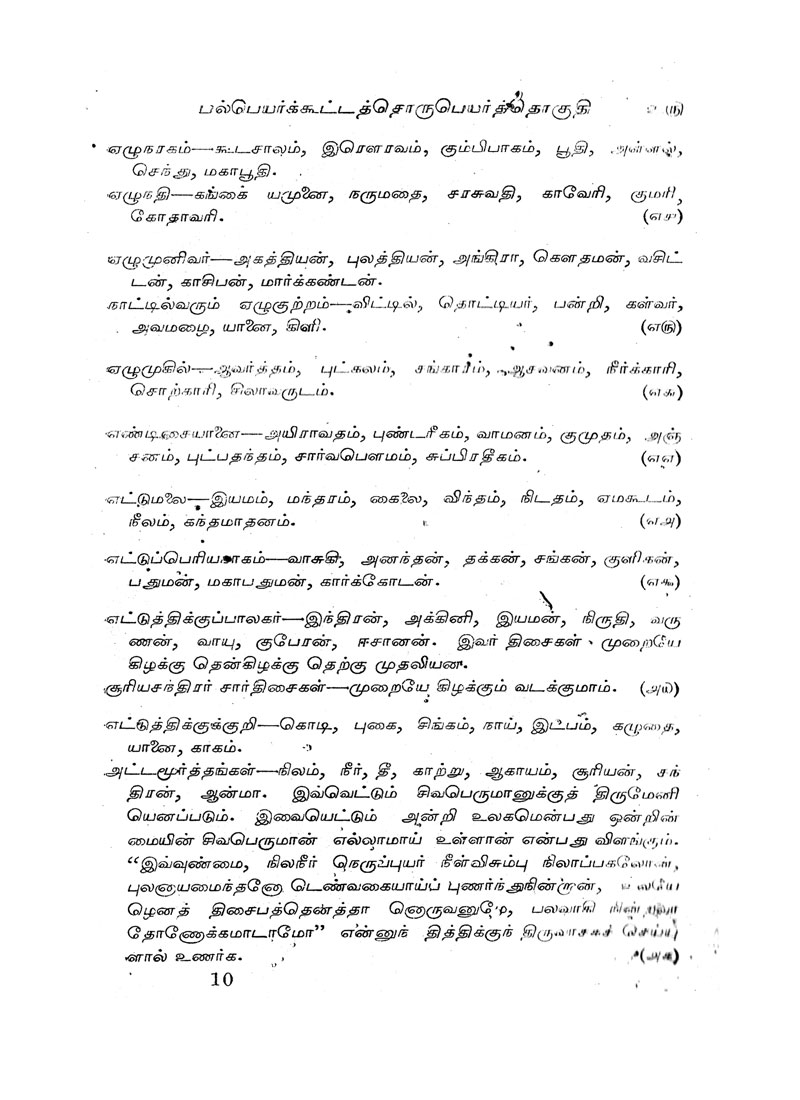 பல்பெயர்க்கூட்டத்தொருபெயர்த்தொகுதி
ஏழுநரகம்—கூடசாலம், இரௌரவம், கும்பிபாகம், பூதி, அள்ளல்,
செந்து, மகாபூதி.
ஏழுநதி—கங்கை யமுனை, நருமதை, சரசுவதி, காவேரி, குமரி,
கோதாவரி. (௭௪)
ஏழுமுனிவர்—அகத்தியன், புலத்தியன், அங்கிரா, கௌதமன், வசிட்
டன், காசிபன், மார்க்கண்டன்.
நாட்டில்வரும் ஏழுகுற்றம்—விட்டில், தொட்டியர், பன்றி, கள்வர்,
அவமழை, யானை, கிளி. (௭௫)
ஏழுமுகில்—ஆவர்த்தம், புட்கலம், சங்காரம், ஆசவணம், நீர்க்காரி,
சொற்காரி, சிலாவருடம். (௭௬)
எண்டிசையானை—அயிராவதம், புண்டரீகம், வாமனம், குமுதம், அஞ்
சனம், புட்பதந்தம், சார்வபௌமம், சுப்பிரதீகம். (௭௭)
எட்டுமலை—இயமம், மந்தரம், கைலை, விந்தம், நிடதம், ஏமகூடம்,
நீலம், கந்தமாதனம். (௭௮)
எட்டுப்பெரியநாகம்—வாசுகி, அனந்தன், தக்கன், சங்கன், குளிகன்,
பதுமன், மகாபதுமன், கார்க்கோடன். (௭௯)
எட்டுத்திக்குப்பாலகர்—இந்திரன், அக்கினி, இயமன், நிருதி, வரு
ணன், வாயு, குபேரன், ஈசானன். இவர் திசைகள் முறையே
கிழக்கு தென்கிழக்கு தெற்கு முதலியன.
சூரியசந்திரர் சார்திசைகள்—முறையே கிழக்கும் வடக்குமாம். (௮௰)
எட்டுத்திக்குக்குறி—கொடி, புகை, சிங்கம், நாய், இடபம், கழுதை,
யானை, காகம்.
அட்டமூர்த்தங்கள்—நிலம், நீர், தீ, காற்று, ஆகாயம், சூரியன், சந்
திரன், ஆன்மா. இவ்வெட்டும் சிவபெருமானுக்குத் திருமேனி
யெனப்படும். இவையெட்டும் அன்றி உலகமென்பது ஒன்றின்
மையின் சிவபெருமான் எல்லாமாய் உள்ளான் என்பது விளங்கும்.
“இவ்வுண்மை, நிலநீர் நெருப்புயிர் நீள்விசும்பு நிலாப்பகலோன்,
புலனாயமைந்தனோ டெண்வகையாய்ப் புணர்ந்துநின்றான், உலகே
ழெனத் திசைபத்தெனத்தா னொருவனுமே, பலவாகி நின்றவா
தோணோக்கமாடாமோ” என்னுந் தித்திக்குந் திருவாசகச் செய்யு
ளால் உணர்க. (௮௧)
10